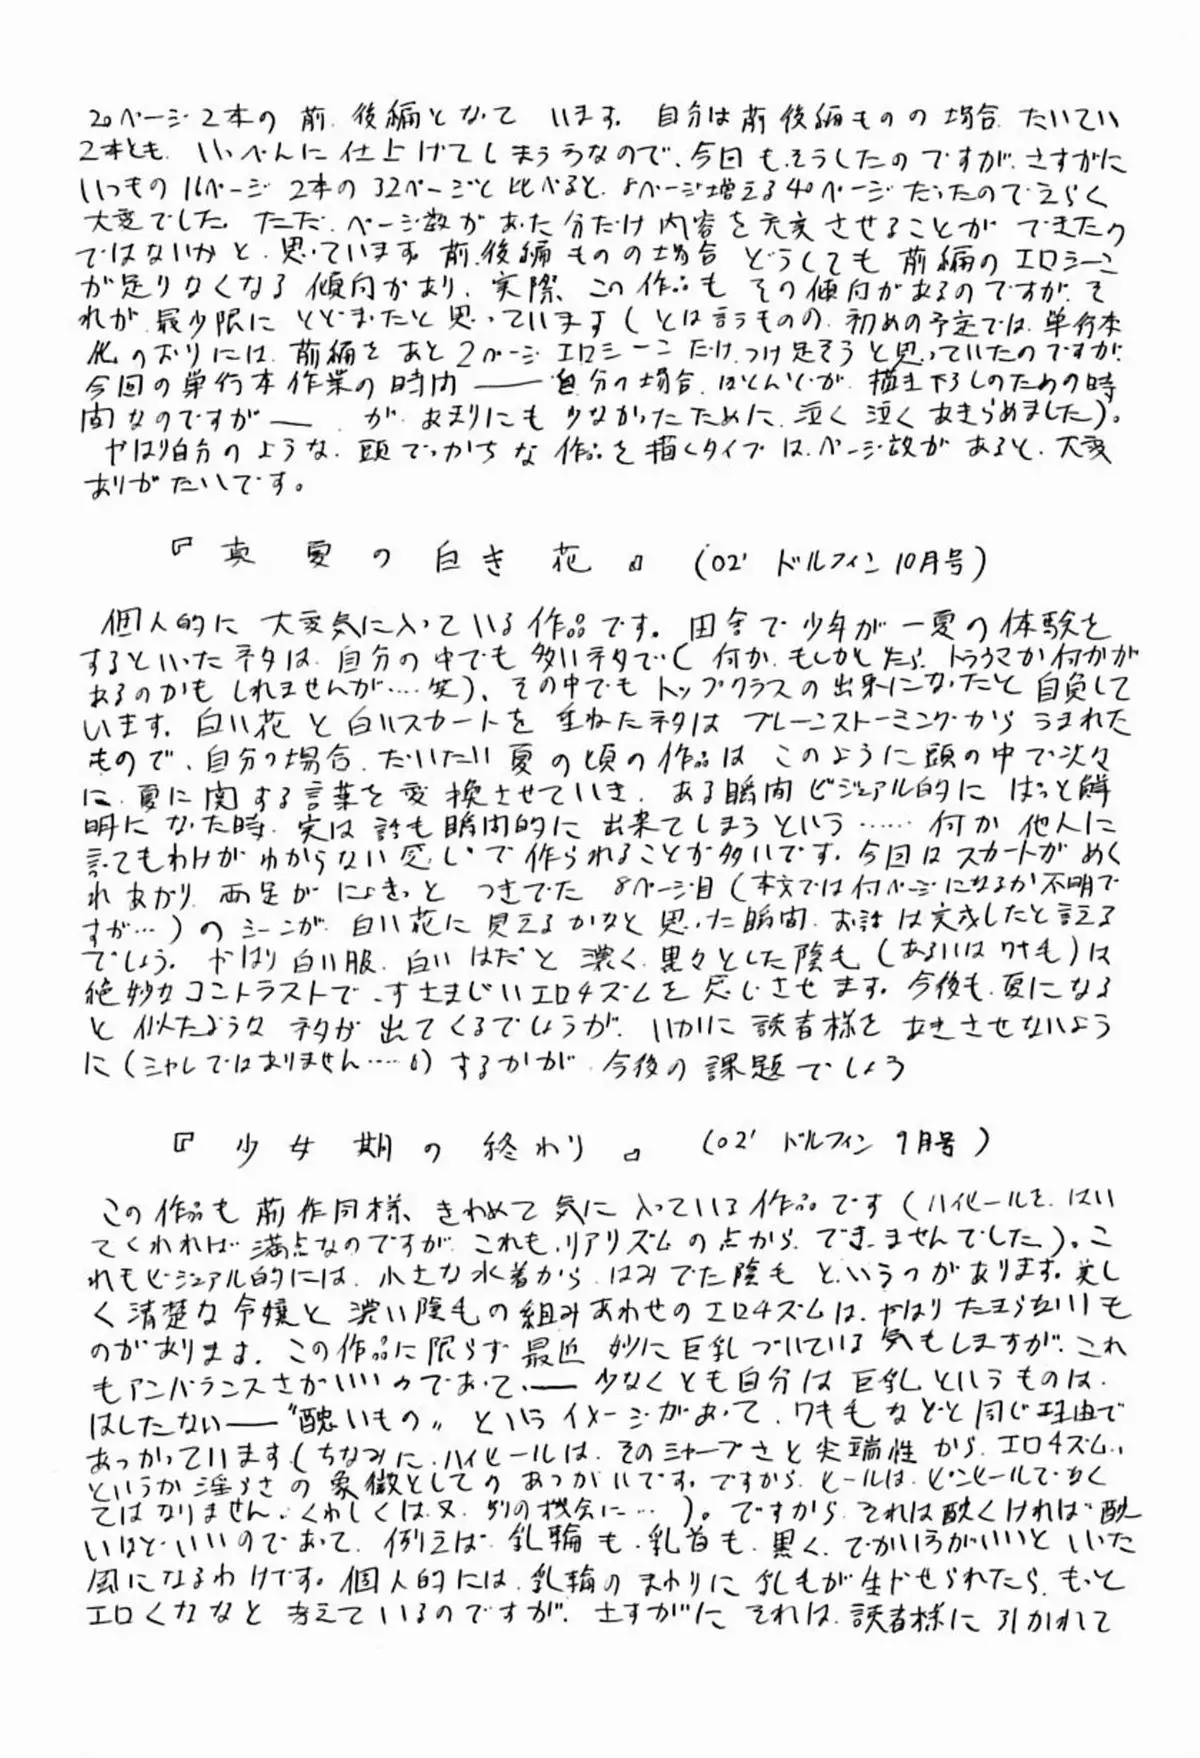 20ページ2本の前、後編となって います。自分は前後編ものの場合、たいてい
2本とも、いっぺんに仕上げてしまうほうなので、今回も、そうしたのですが、さすがに
いつもの16ページ 2本の32ページと比べると、8ページ増える40ページだったのでえらく
大変でした。ただ、ページ数があった分だけ内容を充実させることができたの
ではないかと、思っています。前、後編ものの場合 どうしても 前編のエロシーン
が足りなくなる傾向があり、実際、この作品も その傾向があるのですが、そ
れが、最少限に とどまったと思っています(とは言うものの、初めの予定では、単行本
化のおりには、前編を あと2ページ エロシーンだけ、つけ足そうと思っていたのですが、
今回の単行本作業の時間――自分の場合、ほとんどが、描き下ろしのための時
間なのですが―― が、あまりにも 少なかったために、泣く泣くあきらめました)。
やはり自分のような、頭でっかちな作品を描くタイプは、ページ数があると、大変
ありがたいです。
『真夏の白き花』(02' ドルフィン10月号)
個人的に 大変気に入っている作品です。田舎で少年が一夏の体験を
するといったネタは、自分の中でも 多いネタで(何か、もしかしたら、トラウマか何かが
あるのかも しれませんが‥‥笑)、その中でもトップクラスの出来になったと 自負して
います。白い花と白いスカートを 重ねたネタは ブレーンストーミングから うまれた
もので、自分の場合、だいたい夏の頃の作品は このように頭の中で次々
に、夏に関する言葉を変換させていき、ある瞬間ビジュアル的に はっと鮮
明になった時、実は 話も瞬間的に 出来てしまうという‥‥‥ 何か 他人に
言ってもわけが わからない感じで作られることが多いです。今回はスカートが めく
れあがり 両足が にょきっと つきでた 8ページ目(本文では何ページになるか不明で
すが…)のシーンが、白い花に見えるかなと思った瞬間、お話は完成したと言える
でしょう。やはり白い服、白いはだと 濃く、黒々とした陰毛(あるいはワキ毛)は
絶妙なコントラストで、すさまじいエロチズムを感じさせます。今後も、夏になる
と 似たような ネタが 出てくるでしょうが、いかに 読者様を あきさせないよう
に(シャレではありません‥‥)するかが、今後の課題でしょう
『少女期の終わり』(02' ドルフィン9月号)
この作品も前作同様、きわめて気に入っている作品です(ハイヒールを、はい
てくれれば 満点なのですが、これも、リアリズムの点から、できませんでした)。こ
れもビジュアル的には、小さな水着から、はみでた陰毛 というのがあります。美し
く清楚な令嬢と 濃い陰毛の組みあわせのエロチズムは、やはりたまらないもの
のがあります。この作品に限らず最近 妙に巨乳づいている気もしますが、これ
もアンバランスさがいいのであって、――少なくとも自分は巨乳というものは、
はしたない――“醜いもの„というイメージがあって、ワキ毛などと同じ理由で
あつかっています(ちなみに、ハイヒールは、そのシャープさと尖端性から、エロチズム、
というか淫らさの象徴としてのあつかいです。ですから、ヒールは、ピンヒールでなく
てはなりません。くわしくは又、別の機会に…)。ですから、それは醜くければ醜
いほどいいのであって、例えば、乳輪も、乳首も、黒く、でかいほうがいいと いった
風になるわけです。個人的には、乳輪のまわりに 乳毛が生やせられたら、もっと
エロくなるなと 考えているのですが、さすがに それは、読者様に引かれて